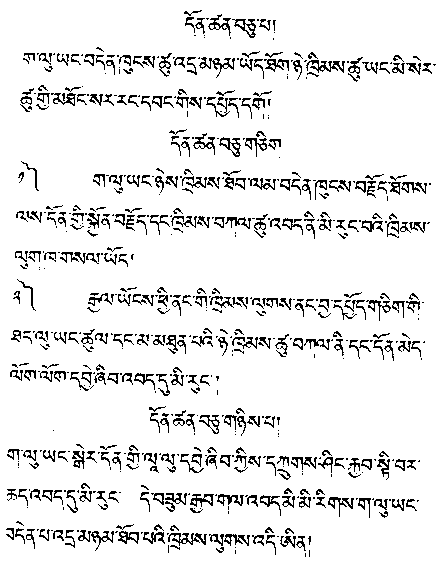 དོན་ཚན་བཅུ་པ།
ག་ལུ་ཡང་བདེན་ཁུངས་ཚུ་འདྲ་མཉམ་ཡོད་ཐོག་ཉེ་ཁྲིམས་ཚུ་ཡང་མི་སེར་
ཚུ་གྱི་མཐོང་སར་རང་དབང་གིས་དཔྱོད་དགོ།
དོན་ཚན་བཅུ་གཅིག
༡༽ ག་ལུ་ཡང་ཉེས་ཁྲིམས་ཐོབ་ལམ་བདེན་ཁུངས་བརྗོད་ཐོགས་
ལས་དོན་གྱི་སྐྱོན་བརྗོད་དང་ཁྲིམས་བཀལ་ཚུ་འབད་ནི་མི་རུང་བའི་ཁྲིམས་
ལུག་ཁ་གསལ་ཡོད།
༢༽ རྒྱལ་ཡོངས་ཕྱི་ནང་གི་ཁྲིམས་ལུགས་ནང་བྱ་དཔྱོད་གཅིག་གི་
ཐད་ལུ་ཡང་ཚུལ་དང་མ་མཐུན་པའི་ཉེ་ཁྲིམས་ཚུ་བཀལ་ནི་དང་དོན་མེད་
ལོག་ལོག་དབྱེ་ཞིབ་འབད་དུ་མི་རུང་།
དོན་ཚན་བཅུ་གཉིས་པ།
ག་ལུ་ཡང་སྒེར་དོན་གྱི་ལཱ་ལུ་དབྱེ་ཞིབ་ཀྱིས་དཀྲུགས་ཤིང་རྒྱབ་སྟི་བར་
ཆད་འབད་དུ་མི་རུང་ དེ་བཟུམ་རྒྱབ་གལ་འབད་མི་མི་རིགས་ག་ལུ་ཡང་
བདེན་པ་འདྲ་མཉམ་ཐོབ་པའི་ཁྲིམས་ལུགས་འདི་ཨིན།